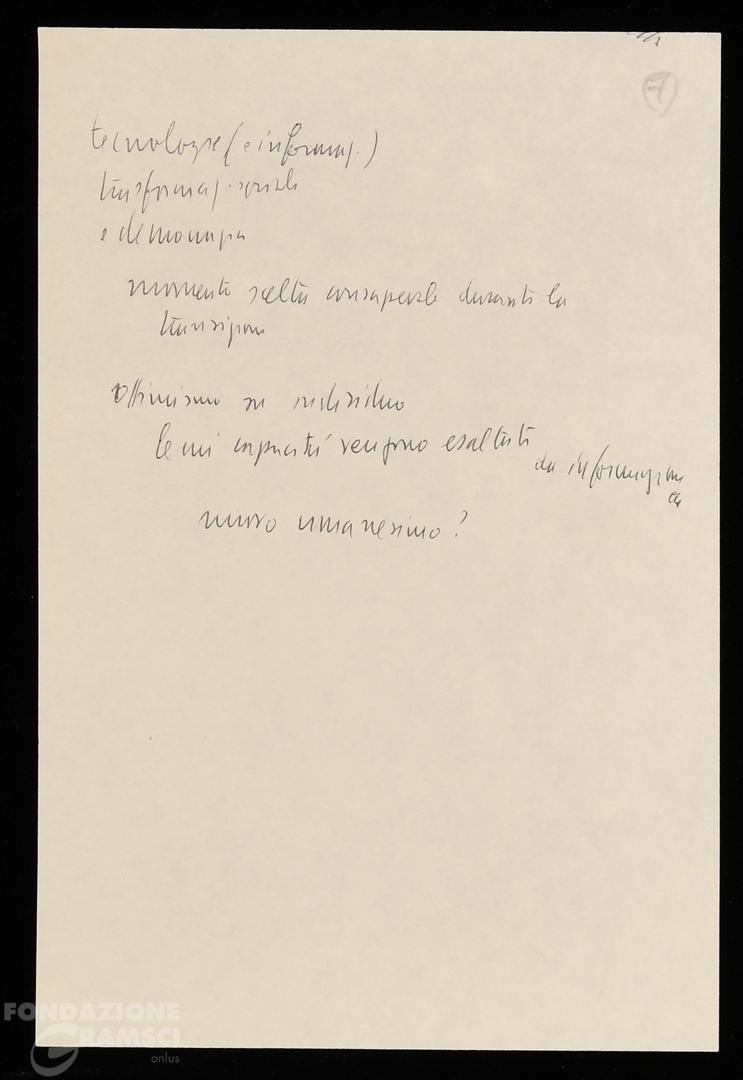 7
tecnologie (e informaz.)
trasformaz. sociale
e democrazia
momento scelta consapevole durante la
transizione
Ottimismo su individuo
le cui capacità vengono esaltate
da informazione
nuovo umanesimo?
FONDAZIONE
GRAMSCI
onlus